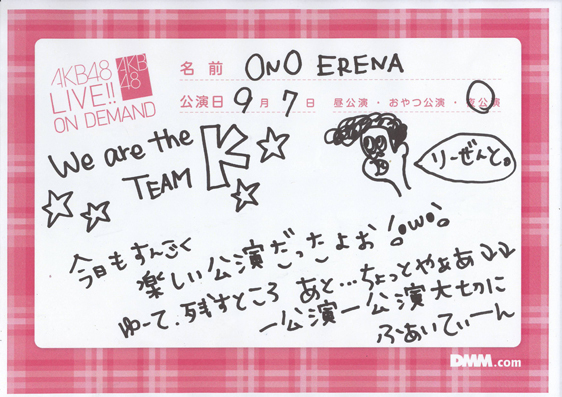 AKB48
LIVE!!
ON DEMAND
AKB
48
名前 ONO ERENA
公演日 9月7日 昼公演・おやつ公演・夜公演
We are the
TEAM K
りーぜんと。
今日もすんごく
楽しい公演だったよお
ゆーて、残すところ あと…ちょっとやぁあ
一公演一公演大切に
ふぁいてぃーん
DMM.com